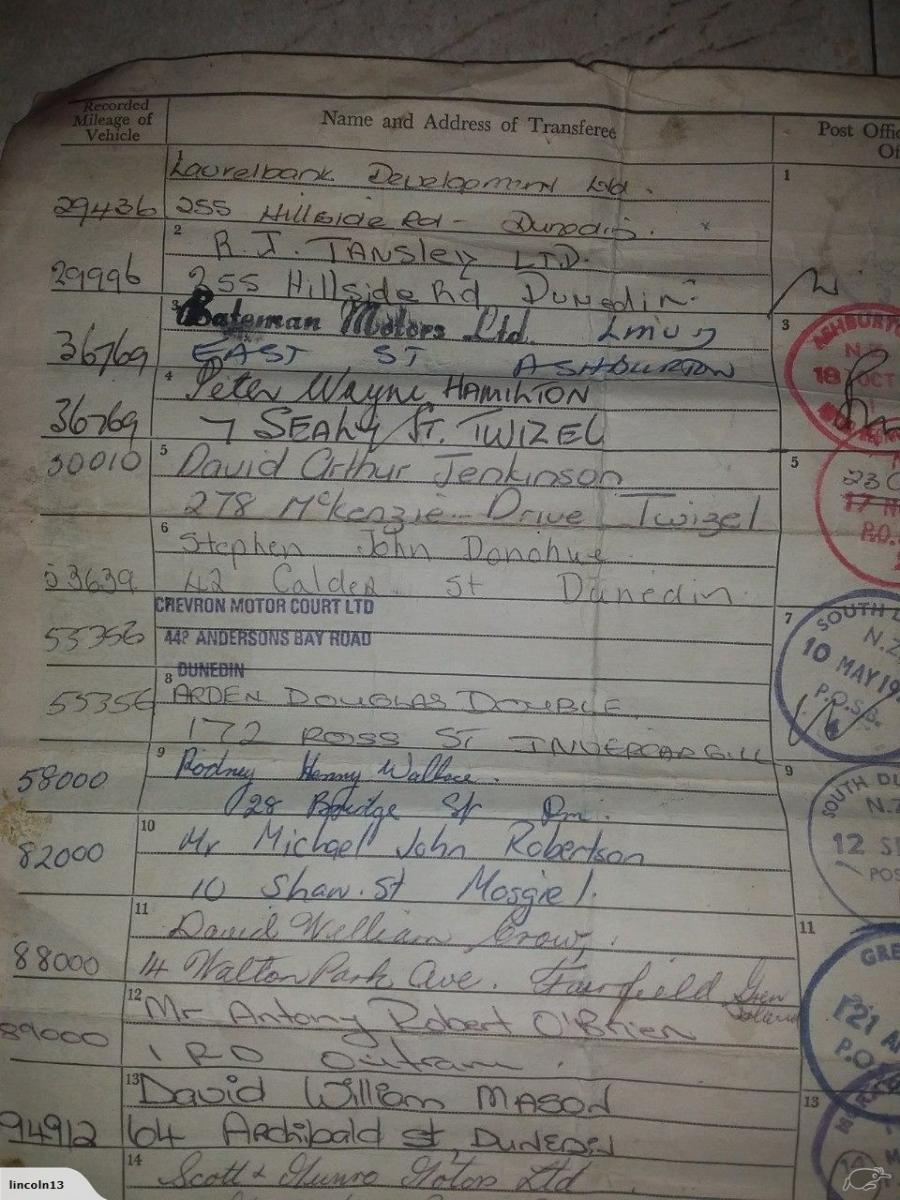 Recorded
Mileage of
Vehicle
Name and Address of Transferee
Post Offi
Of
1
Laurelbank Development Ltd.
29436
255 Hillside Rd - Dunedin.
2
R. J. TANSLEY LTD.
29996
255 Hillside Rd Dunedin
3
Bateman Motors Ltd. LMVD
36769
EAST ST ASHBURTON
3
ASHBURTO
N
18 OCT
4
Peter Wayne HAMILTON
36769
7 SEALY ST. TWIZEL
30010
5
David Arthur Jenkinson
278 McKenzie Drive Twizel
5
23 O
P.O.
6
Stephen John Donohue
53639
42 Calder St Dunedin
CHEVRON MOTOR COURT LTD
55356
442 ANDERSONS BAY ROAD
DUNEDIN
7
SOUTH D
N.Z
10 MAY 19
P.O.S.B.
8
ARDEN DOUGLAS DOUBLE
55356
172 ROSS ST INVERCARGILL
9
Rodney Henry Wallace.
58000
128 Bridge St Dn.
9
SOUTH DU
N.Z
12 S
POS
10
Mr Michael John Robertson
82000
10 Shaw. St Mosgiel.
11
David William Crow,
88000
14 Walton Park Ave. Fairfield Green Island
11
GRE
21 A
P.O.
12
Mr Antony Robert O'Brien
89000
1 RD Outram.
13
David William MASON
94912
64 Archibald st, DUNEDIN
13
14
Scott & Munro Motors Ltd
lincoln13